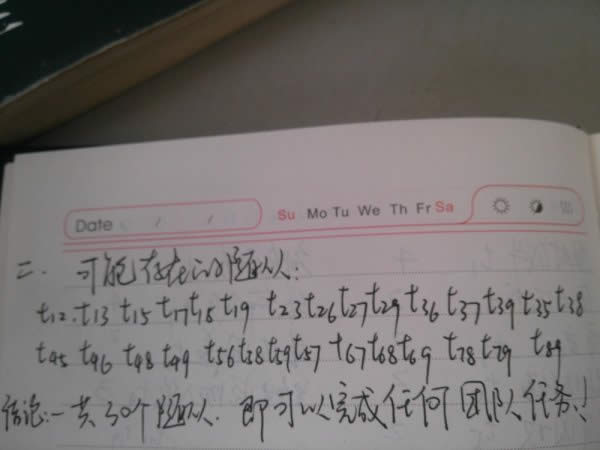 Date / / Su Mo Tu We Th Fr Sa
二. 可能存在的:
t12. t13 t15 t17 t18 t19 t23 t26 t27 t29 t36 t37 t39 t35 t38
t45 t46 t48 t49 t56 t58 t59 t57 t67 t68 t69 t78 t79 t89
结论:一共30个. 即可以完成任何团队任务!